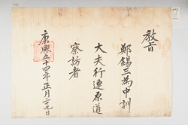 教旨
鄭錫三為中訓
大夫行連原道
察訪者
康熙五十四年正月十九日